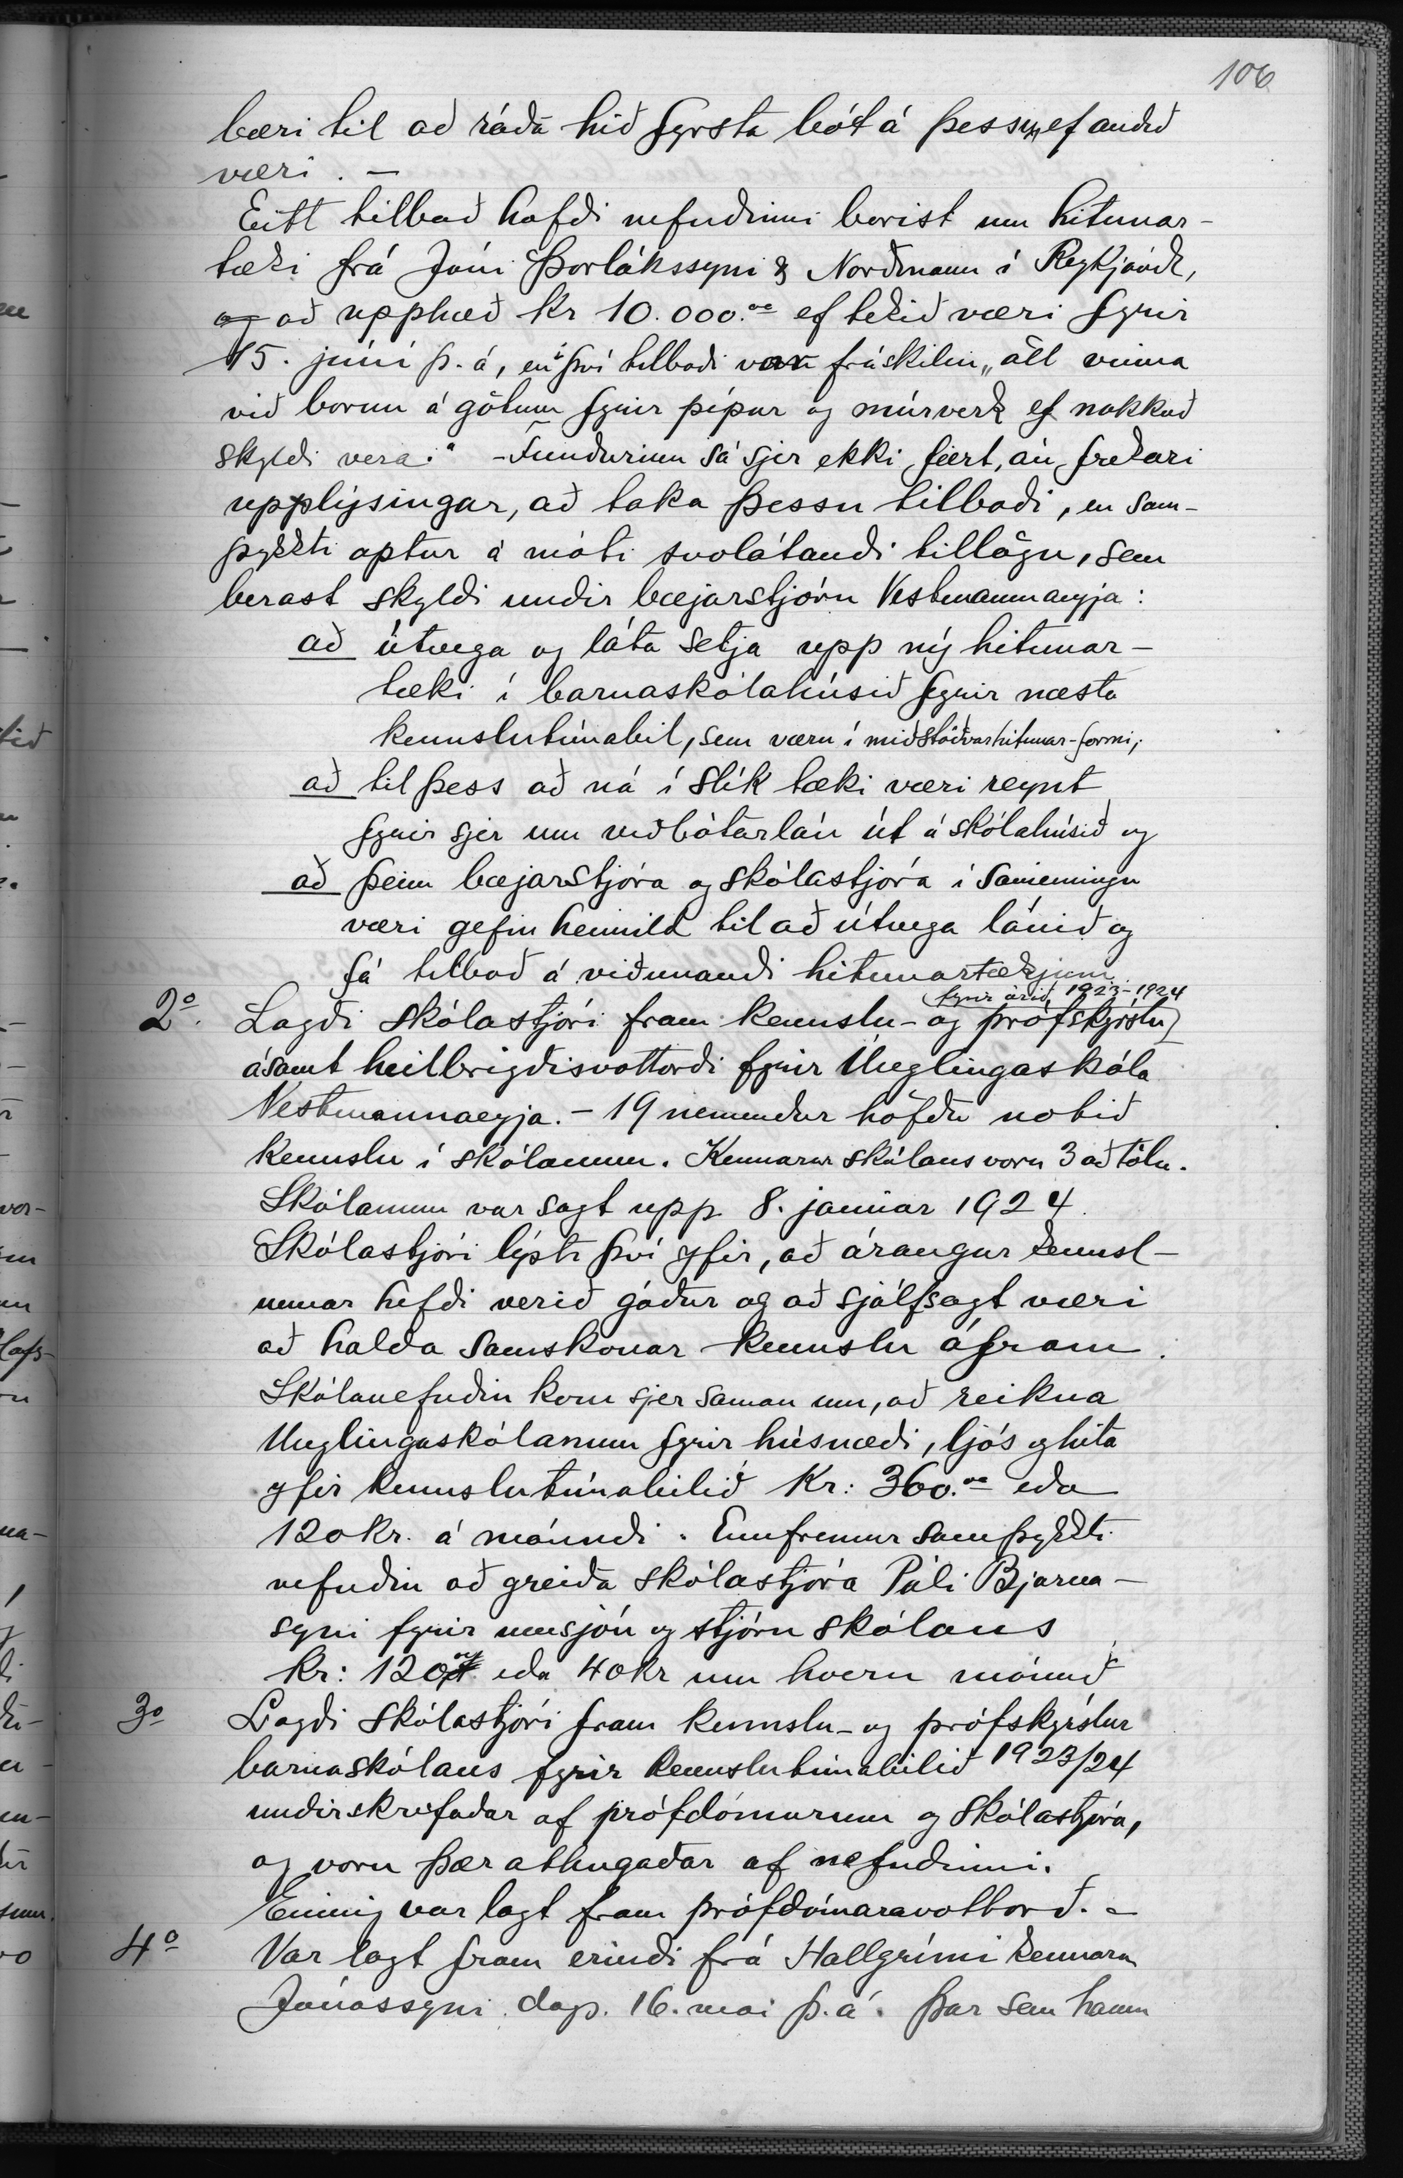 106
bæri til að ráða hið fyrsta bót á þessu, ef auðið
væri. —
Eitt tilboð hafði nefndinni borist um hitunar-
tæki frá Jóni Þorlákssyni & Norðmann í Reykjavík,
og að upphæð kr 10.000.oo ef tekið væri fyrir
15. júní þ. á, en í því tilboði var fráskilin „öll vinna
við borun á götum fyrir pípur og múrverk ef nokkuð
skyldi vera." - Fundurinn sá sjer ekki fært, án frekari
upplýsingar, að taka þessu tilboði, en sam-
þykkti aptur á móti svolátandi tillögu, sem
berast skyldi undir bæjarstjórn Vestmannaeyja:
að útvega og láta setja upp ný hitunar-
tæki í barnaskólahúsið fyrir næsta
kennslutímabil, sem væru í miðstöðvarhitunar-formi;
að til þess að ná í slík tæki væri reynt
fyrir sjer um viðbótarlán út á skólahúsið og
að þeim bæjarstjóra og skólastjóra í sameiningu
væri gefin heimild til að útvega lánið og
fá tilboð á viðunandi hitunartækjum.
fyrir árið 1923-1924
2o. Lagði skólastjóri fram kennslu- og prófskýrslu
ásamt heilbrigðisvottorði fyrir Unglingaskóla
Vestmannaeyja. - 19 nemendur höfðu notið
kennslu í skólanum. Kennarar skólans voru 3 að tölu.
Skólanum var sagt upp 8. janúar 1924.
Skólastjóri lýsti því yfir, að árangur kennsl-
unnar hefði verið góður og að sjálfsagt væri
að halda samskonar kennslu áfram.
Skólanefndin kom sjer saman um, að reikna
Unglingaskólanum fyrir húsnæði, ljós og hita
yfir kennslutímabilið Kr: 360.oo eða
120 kr. á mánuði. Ennfremur samþykkti
nefndin að greiða skólastjóra Páli Bjarna-
syni fyrir umsjón og stjórn skólans
kr: 120 eða 40 kr um hvern mánuð
3o Lagði skólastjóri fram kennslu- og prófskýrslur
barnaskólans fyrir kennslutímabilið 1923/24
undirskrifaðar af prófdómurum og skólastjóra,
og voru þær athugaðar af nefndinni.
Einnig var lagt fram prófdómaravottorð. -
4o Var lagt fram erindi frá Hallgrími kennara
Jónassyni dags. 16. mai þ. á. þar sem hann